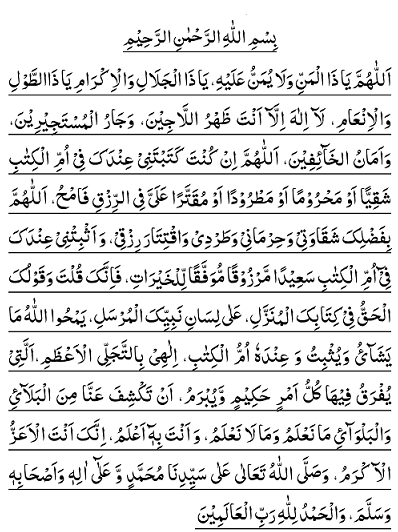 بِسْمِ اللهِ الرَّحْمٰنِ الرَّحِيْمِ
اَللّٰهُمَّ يَا ذَا الْمَنِّ وَلَا يُمَنُّ عَلَيْهِ، يَا ذَا الْجَلَالِ وَالْاِكْرَامِ يَا ذَا الطَّوْلِ
وَالْاِنْعَامِ، لَآ اِلٰهَ اِلَّآ اَنْتَ ظَهْرُ اللَّاجِيْنَ، وَجَارُ الْمُسْتَجِيْرِيْنَ،
وَاَمَانُ الْخَآئِفِيْنَ، اَللّٰهُمَّ اِنْ كُنْتَ كَتَبْتَنِيْ عِنْدَكَ فِيْ اُمِّ الْكِتٰبِ
شَقِيًّا اَوْ مَحْرُوْمًا اَوْ مَطْرُوْدًا اَوْ مُقَتَّرًا عَلَيَّ فِي الرِّزْقِ فَامْحُ، اَللّٰهُمَّ
بِفَضْلِكَ شَقَاوَتِيْ وَحِرْمَانِيْ وَطَرْدِيْ وَاقْتِتَارَ رِزْقِيْ، وَاَثْبِتْنِيْ عِنْدَكَ
فِيْٓ اُمِّ الْكِتٰبِ سَعِيْدًا مَّرْزُوْقًا مُّوَفَّقًا لِّلْخَيْرَاتِ، فَاِنَّكَ قُلْتَ وَقَوْلُكَ
الْحَقُّ فِيْ كِتَابِكَ الْمُنَزَّلِ، عَلٰى لِسَانِ نَبِيِّكَ الْمُرْسَلِ، يَمْحُوا اللهُ مَا
يَشَآئُ وَيُثْبِتُ وَ عِنْدَهٗ اُمُّ الْكِتٰبِ، اِلٰهِيْ بِالتَّجَلِّي الْاَعْظَمِ، اَلَّتِيْ
يُفْرَقُ فِيْهَا كُلُّ اَمْرٍ حَكِيْمٍ وَّيُبْرَمُ، اَنْ تَكْشِفَ عَنَّا مِنَ الْبَلَآئِ
وَالْبَلْوَآئِ مَا نَعْلَمُ وَمَا لَا نَعْلَمُ، وَاَنْتَ بِهٖٓ اَعْلَمُ، اِنَّكَ اَنْتَ الْاَعَزُّ
الْاَكْرَمُ، وَصَلَّى اللهُ تَعَالٰى عَلٰى سَيِّدِنَا مُحَمَّدٍ وَّ عَلٰٓى اٰلِهٖ وَاَصْحَابِهٖ
وَسَلَّمَ، وَالْحَمْدُ لِلّٰهِ رَبِّ الْعَالَمِيْنَ